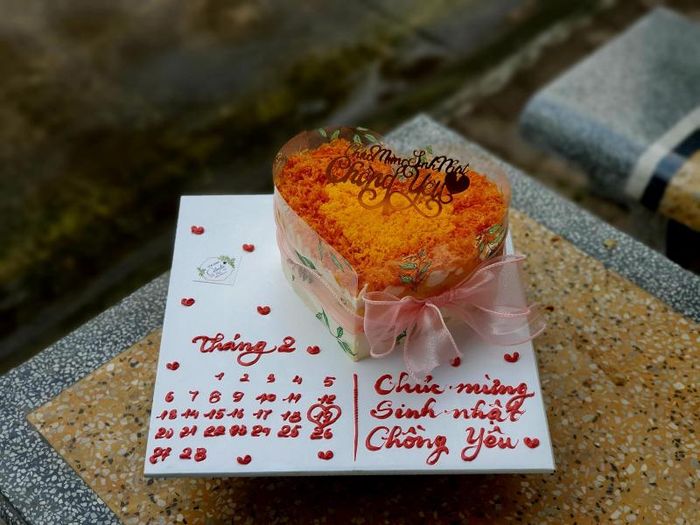 Chúc Mừng Sinh Nhật
Chồng Yêu
Tháng 2
1 2 3 4 5
6 7 8 9 10 11 12
13 14 15 16 17 18 19
20 21 22 23 24 25 26
27 28
Chúc mừng
Sinh nhật
Chồng Yêu